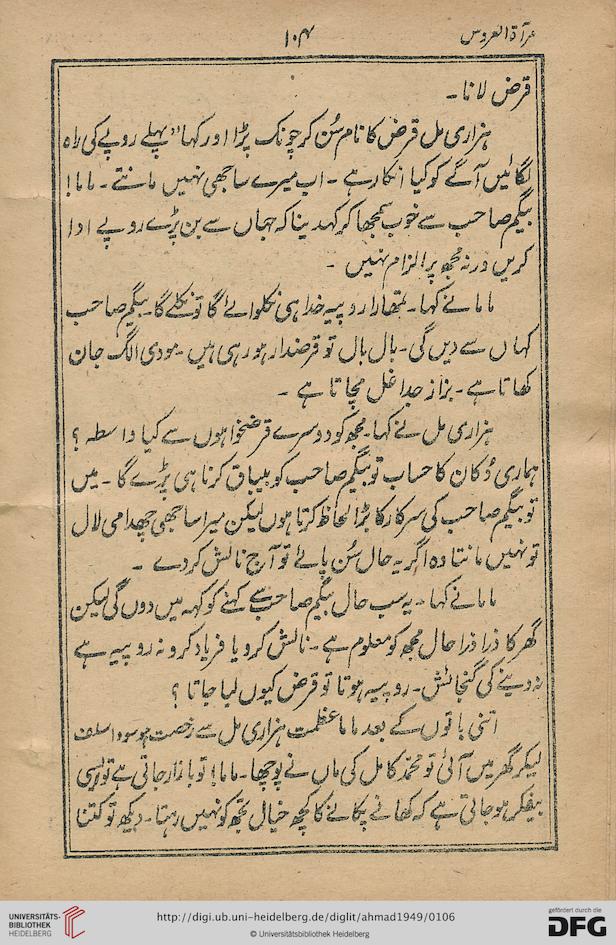 مرآۃ العروس
۱۰۴
قرض لانا۔
ہزاری مل قرض کا نام سُن کر چونک پڑا اور کہا "پہلے روپے کی راہ
لگائیں آگے کو کیا انکار ہے۔ اب میرے ساجھی نہیں مانتے۔ ماما!
بیگم صاحب سے خوب سمجھا کر کہدینا کہ جہاں سے بن پڑے روپے ادا
کریں ورنہ مجھ پر الزام نہیں۔
ماما نے کہا۔ تمھارا روپیہ خدا ہی نکلوائے گا تو نکلے گا۔ بیگم صاحب
کہاں سے دیں گی۔ بال بال تو قرضدار ہو رہی ہیں۔ مودی الگ جان
کھاتا ہے۔ بزاز جدا غل مچاتا ہے۔
ہزاری مل نے کہا۔ مجھ کو دوسرے قرضخواہوں سے کیا واسطہ؟
ہماری دُکان کا حساب تو بیگم صاحب کو بیباق کرنا ہی پڑے گا۔ میں
تو بیگم صاحب کی سرکار کا بڑا لحاظ کرتا ہوں لیکن میرا ساجھی چھدامی لال
تو نہیں مانتا وہ اگر یہ حال سُن پائے تو آج نالش کر دے۔
ماما نے کہا۔ یہ سب حال بیگم صاحب سے کہنے کو کہہ میں دوں گی لیکن
گھر کا ذرا ذرا حال مجھ کو معلوم ہے۔ نالش کرو یا فریاد کرو نہ روپیہ ہے
نہ دینے کی گنجائش۔ روپیہ ہوتا تو قرض کیوں لیا جاتا؟
اتنی باتوں کے بعد ماما عظمت ہزاری مل سے رخصت ہو سودا سلف
لیکر گھر میں آئی تو محمد کامل کی ماں نے پوچھا۔ ماما! تو بازار جاتی ہے تو ایسی
بیفکر ہو جاتی ہے کہ کھانے پکانے کا کچھ خیال تجھ کو نہیں رہتا۔ دیکھ تو کتنا
UNIVERSITÄTS-
BIBLIOTHEK
HEIDELBERG
http://digi.ub.uni-heidelberg.de/diglit/ahmad1949/0106
© Universitätsbibliothek Heidelberg
gefördert durch die
DFG